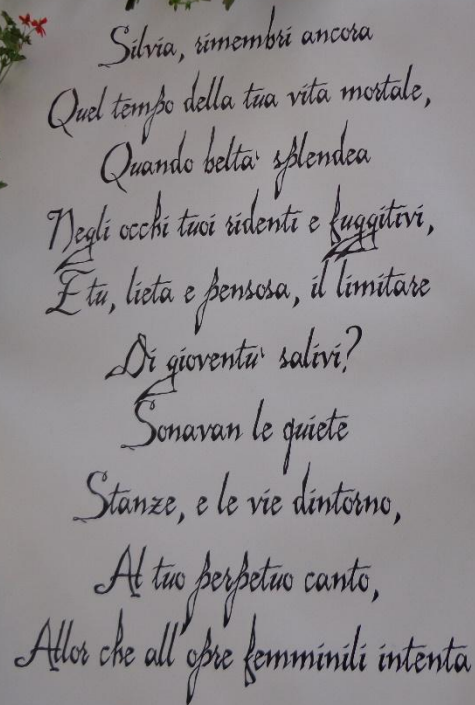 Silvia, rimembri ancora
Quel tempo della tua vita mortale,
Quando belta' splendea
Negli occhi tuoi ridenti e fuggitivi,
E tu, lieta e pensosa, il limitare
Di gioventu' salivi?
Sonavan le quiete
Stanze, e le vie dintorno,
Al tuo perpetuo canto,
Allor che all'opre femminili intenta